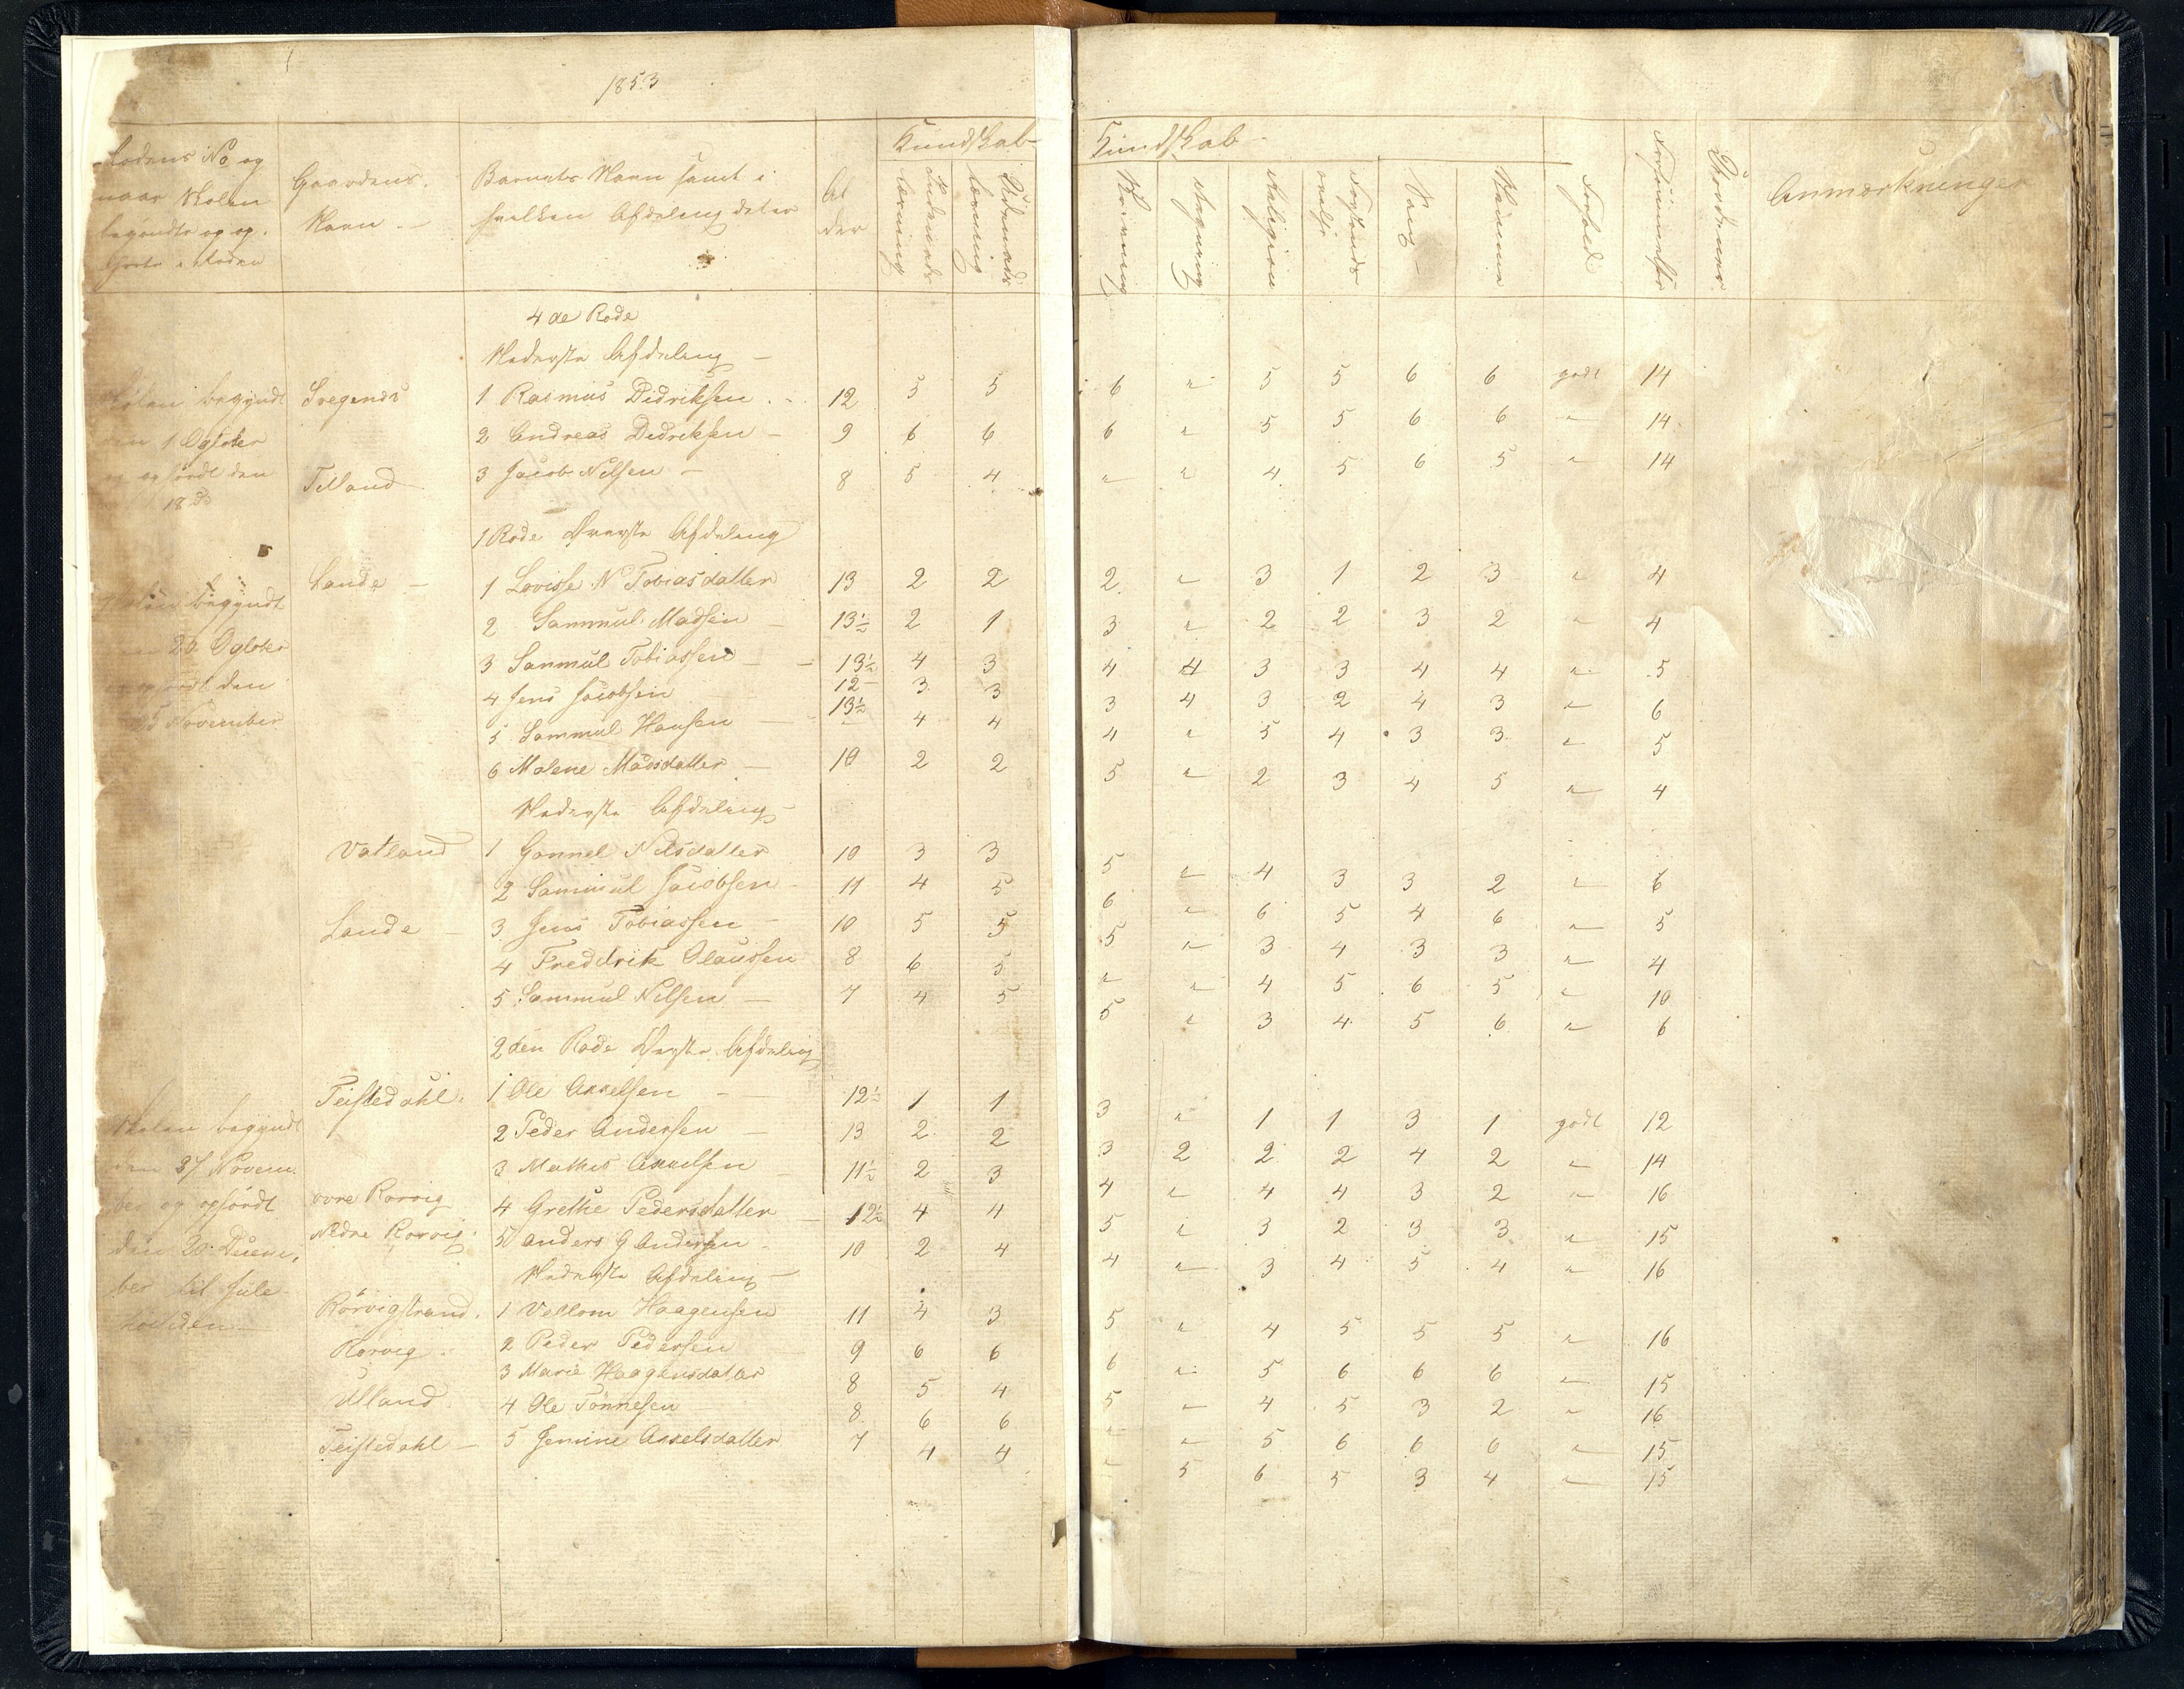 1853
Rodens No og
naar Skolen
begyndte og op-
hørte i Roden
Gaardens
Navn
Barnets Navn samt i
hvilken Afdeling det er
Al
der
Kundskab
Indenads
Læsning
Udenads
Læsning
Kundskab
Skrivning
Regning
Religion
Forstands
øvelse
Sang
Nemme
Forhold
Forsømmelse
Anmærkninger
4de Rode
Nederste Afdeling
Skolen begyndt
den 1 Ogtober
og ophørdt den
18 Do
Svegends 1 Rasmus Didriksen 12 5 5 6 " 5 5 6 6 godt 14
2 Andreas Didreksen 9 6 6 6 " 5 5 6 6 " 14
Tilland 3 Jacob Nilsen 8 5 4 " " 4 5 6 5 " 14
1 Rode Øverste Afdeling
Skolen begyndt
Ogtober
og ophørdt den
November
Lande 1 Lovisse N Tobiasdatter 13 2 2 2 " 3 1 2 3 " 4
2 Sammul Madsen 13½ 2 1 3 " 2 2 3 2 " 4
3 Sammul Tobiassen 13½ 4 3 4 4 3 3 4 4 " 5
4 Jens Jacobsen 12 3 3 3 4 3 2 4 3 " 6
5 Sammul Hansen 13½ 4 4 4 " 5 4 3 3 " 5
6 Malene Madsdatter 10 2 2 5 " 2 3 4 5 " 4
Nederste Afdeling
Vatland 1 Gonnel Nilsdatter 10 3 3 5 " 4 3 3 2 " 6
2 Sammul Jacobsen 11 4 5 6 " 6 5 4 6 " 5
Lande 3 Jens Tobiassen 10 5 5 5 " 3 4 3 3 " 4
4 Fredderik Olaussen 8 6 5 " " 4 5 6 5 " 10
5 Sammul Nilsen 7 4 5 5 " 3 4 5 6 " 6
2den Rode Øverste Afdeling
Skolen begyndt
den 27 Novem
ber og ophørdt
den 20 Decem,
ber til Jule
Teistedahl 1 Ole Axxelsen 12½ 1 1 3 " 1 1 3 1 godt 12
2 Peder Andersen 13 2 2 3 2 2 2 4 2 " 14
3 Mathis Axxelsen 11½ 2 3 4 " 4 4 3 2 " 16
ovre Rorvig 4 Grethe Pedersdatter 12½ 4 4 5 " 3 2 3 3 " 15
Nedre Rorvig 5 Anders G Andersen 10 2 4 4 " 3 4 5 4 " 16
Nederste Afdeling
Rorvigstrand 1 Vellom Haagensen 11 4 3 5 " 4 5 5 5 " 16
Rorvig 2 Peder Pedersen 9 6 6 6 " 5 6 6 6 " 15
3 Marie Haagensdatter 8 5 4 5 " 4 5 3 2 " 16
Ulland 4 Ole Tønnesen 8 6 6 " " 5 6 6 6 " 15
Teistedahl 5 Jemine Axselsdatter 7 4 4 " 5 6 5 3 4 " 15